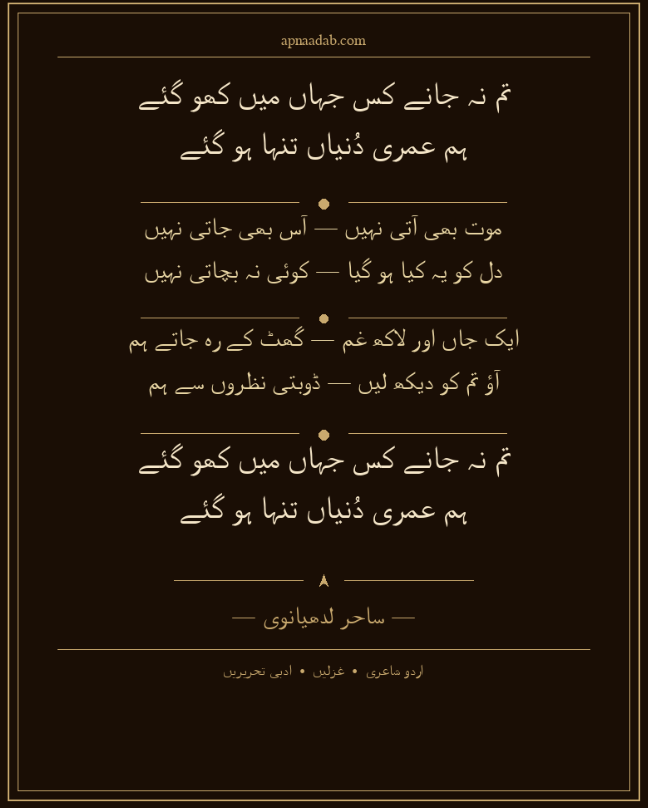 apnaadab.com
تم نہ جانے کس جہاں میں کھو گئے
ہم عمری دُنیاں تنہا ہو گئے
موت بھی آتی نہیں — آس بھی جاتی نہیں
دل کو یہ کیا ہو گیا — کوئی نہ بچاتی نہیں
ایک جاں اور لاکھ غم — گھٹ کے رہ جاتے ہم
آؤ تم کو دیکھ لیں — ڈوبتی نظروں سے ہم
تم نہ جانے کس جہاں میں کھو گئے
ہم عمری دُنیاں تنہا ہو گئے
— ساحر لدھیانوی —
اردو شاعری • غزلیں • ادبی تحریریں